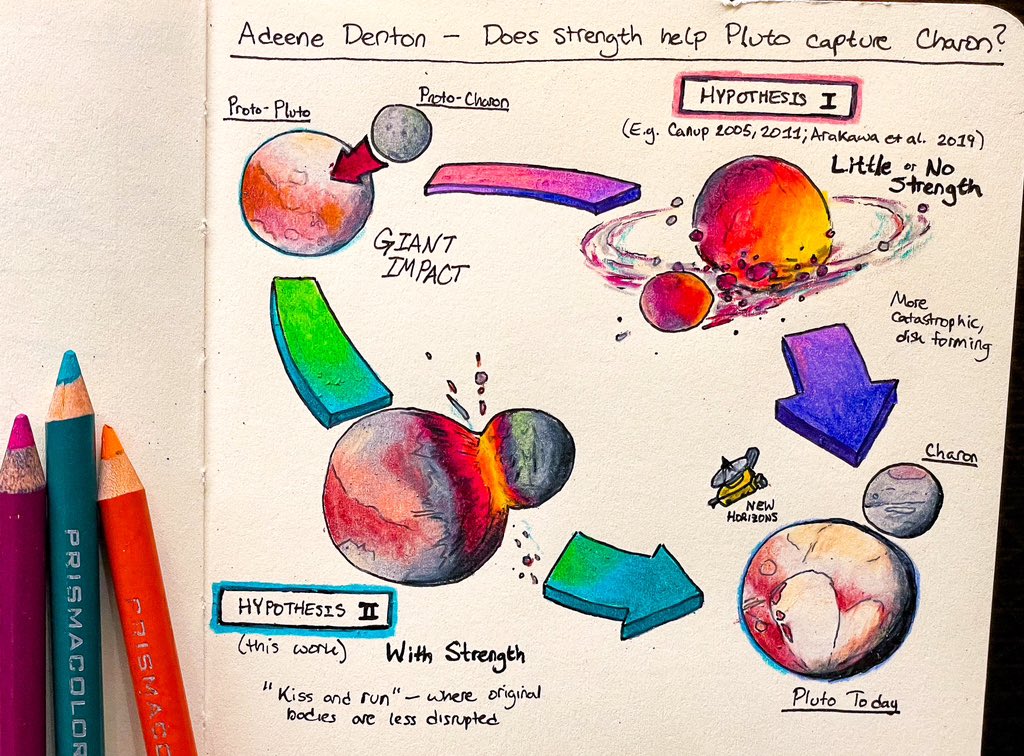 Adeene Denton – Does strength help Pluto capture Charon?
Proto-Pluto
Proto-Charon
GIANT
IMPACT
HYPOTHESIS I
(E.g. Canup 2005, 2011; Arakawa et al. 2019)
Little or No
Strength
More
catastrophic,
disk forming
HYPOTHESIS II
(this work)
With Strength
"Kiss and run" – where original
bodies are less disrupted
NEW
HORIZONS
Charon
Pluto Today
PRISMACOLOR
PRISMACO